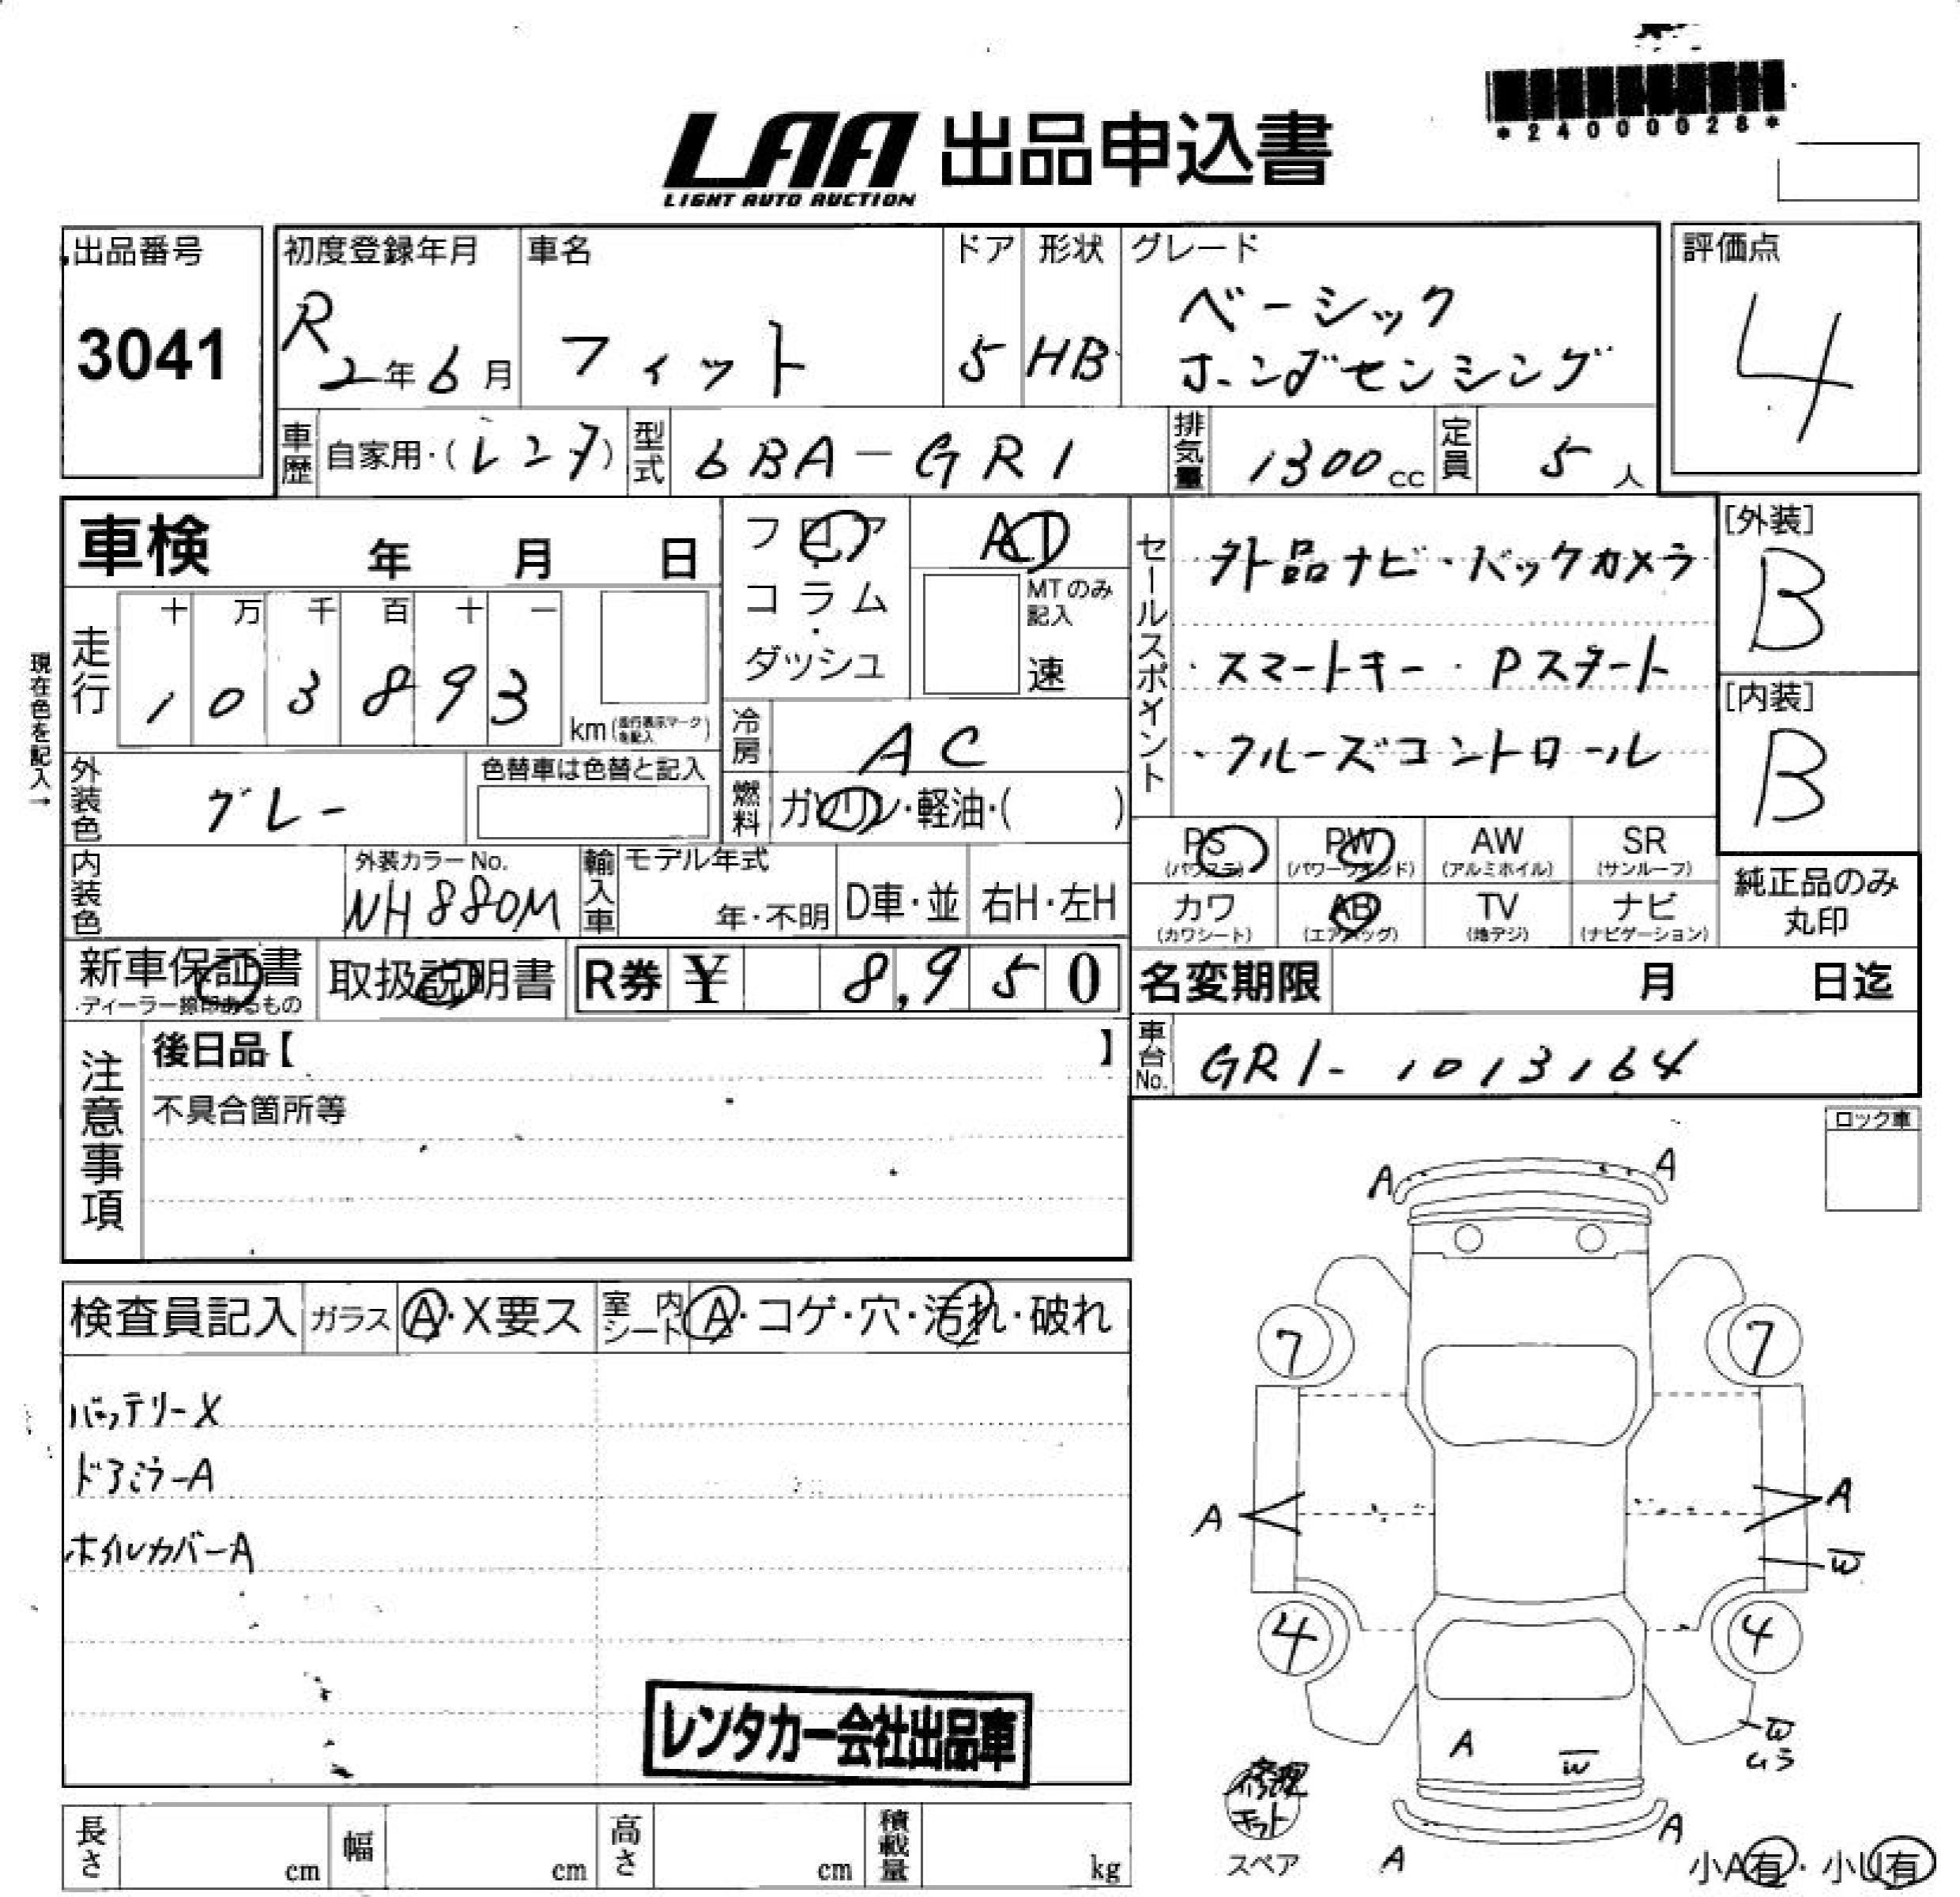 *24000028*
LAA 出品申込書
LIGHT AUTO AUCTION
出品番号
3041
初度登録年月
R2年6月
車名
フィット
ドア
5
形状
HB
グレード
ベーシック
ホンダセンシング
評価点
4
車歴 自家用・(レンタ)
型式 6BA-GR1
排気量 1300cc
定員 5人
車検 年 月 日
フロア
コラム
・
ダッシュ
AT
MTのみ
記入
速
現在色を記入→
走行
十 万 千 百 十 一
1 0 3 8 9 3
km(走行表示マークを記入)
冷房 AC
燃料 ガソリン・軽油・( )
外装色 グレー
色替車は色替と記入
内装色
外装カラーNo.
NH880M
輸入車
モデル年式
年・不明
D車・並
右H・左H
セールスポイント
外品ナビ・バックカメラ
・スマートキー・Pスタート
・クルーズコントロール
[外装]
B
[内装]
B
PS
(パワステ)
PW
(パワーウインド)
AW
(アルミホイル)
SR
(サンルーフ)
カワ
(カワシート)
AB
(エアバッグ)
TV
(地デジ)
ナビ
(ナビゲーション)
純正品のみ
丸印
新車保証書
・ディーラー捺印あるもの
取扱説明書
R券 ¥ 8,950
名変期限 月 日迄
車台No. GR1-1013164
注意事項
後日品【 】
不具合箇所等
ロック車
検査員記入
ガラス A・X要ス
室内シート A・コゲ・穴・汚れ・破れ
バッテリーX
ドアミラーA
ホイルカバーA
レンタカー会社出品車
長さ cm
幅 cm
高さ cm
積載量 kg
A
A
7
7
A
A
W
4
4
W
ムラ
A
W
修理
キット
スペア
A
A
小A有・小U有